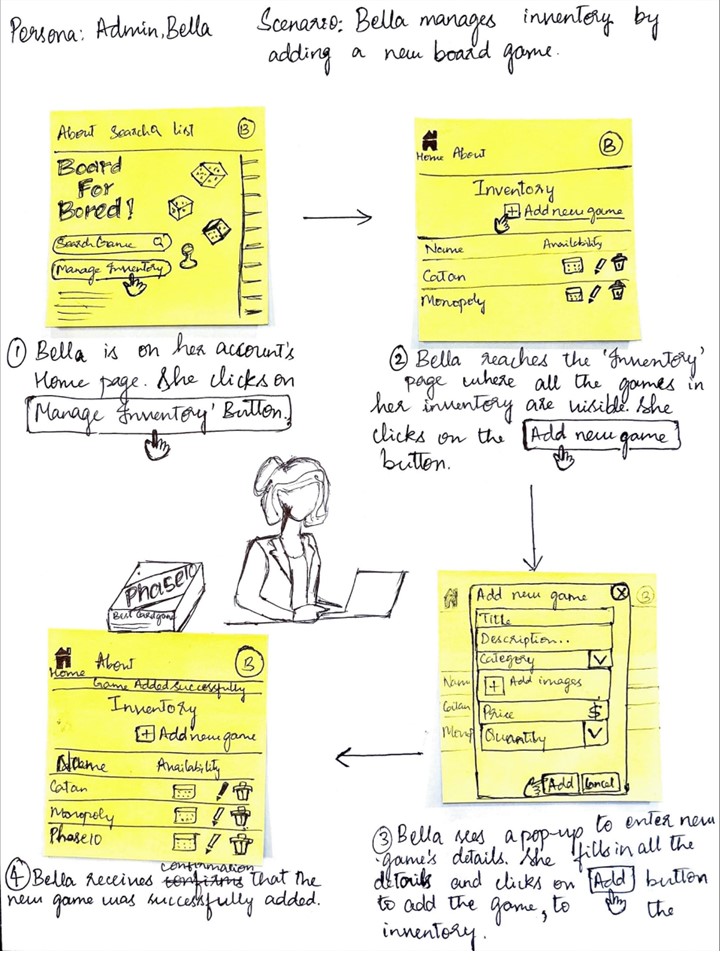 Persona: Admin, Bella
Scenario: Bella manages inventory by
adding a new board game.
About Search a List B
Board
For
Bored!
Search Game
Manage Inventory
① Bella is on her account's
Home page. She clicks on
'Manage Inventory' Button.
Home About B
Inventory
+ Add new game
Name Availability
Catan
Monopoly
② Bella reaches the 'Inventory'
page where all the games in
her inventory are visible. She
clicks on the 'Add new game'
button.
Phase10
Best card game
B
Add new game X
Title
Description..
Category V
Nam
+ Add images
Catan
Price $
Monop
Quantity V
Add Cancel
③ Bella sees a pop-up to enter new
game's details. She fills in all the
details and clicks on 'Add' button
to add the game, to the
inventory.
Home About B
Game Added successfully
Inventory
+ Add new game
Name Availability
Catan
Monopoly
Phase10
④ Bella receives confirmation that the
new game was successfully added.